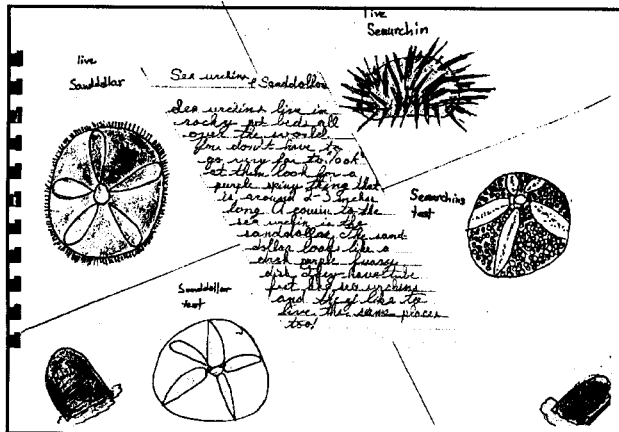 live
Seaurchin
live
Sanddollar
Sea urchins & Sanddollars
Sea urchins live in
rocky pot beds all
over the world.
You don't have to
go very far to "look"
at them look for a
purple spiny thing that
is around 2-3 inches
long. A cousin to the
sea urchin is the
sanddollar. The sand-
dollar looks like a
dark purple fuzzy
disk. They have tube
feet like sea urchins
and they like to
live the same places
too!
Seaurchins
test
Sanddollar
test